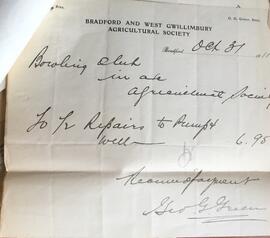 BRADFORD AND WEST GWILLIMBURY
AGRICULTURAL SOCIETY
G. G. Green, Secy.
Bradford, Oct 31
Bowling Club
in a/c
Agricultural Society
To ½ Repairs to Pump &
Well 6.95
Received payment
Geo G Green